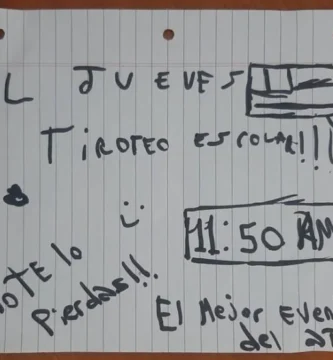 L JUEVES
TIROTEO ESCOLAR!!!
11:50 AM
OTE lo
pierdas!!!
El Mejor Even
del